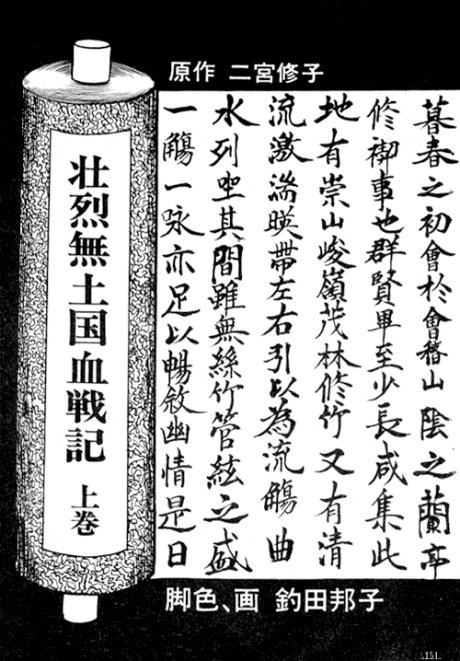 原作 二宮修子
暮春之初會於會稽山陰之蘭亭
修禊事也群賢畢至少長咸集此
地有崇山峻嶺茂林修竹又有清
流激湍暎帶左右引以為流觴曲
水列坐其間雖無絲竹管絃之盛
一觴一咏亦足以暢敘幽情是日
壮烈無土国血戦記 上巻
脚色、画 釣田邦子
.151.